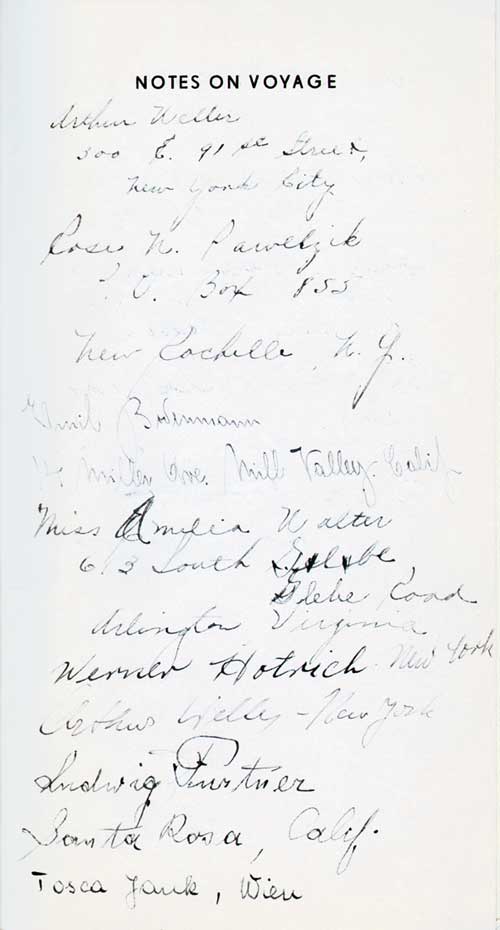 NOTES ON VOYAGE
Arthur Weller
300 E. 91 st Street,
New York City
Rose N. Pawelzik
P. O. Box 855
New Rochelle, N. Y.
Emil Bodenmann
Miller Ave. Mill Valley Calif
Miss Amelia Walter
613 South
Glebe Road
Arlington Virginia
Werner Hotrich New York
Arthur Weller - New York
Ludwig Purtner
Santa Rosa, Calif.
Tosca Jank, Wien